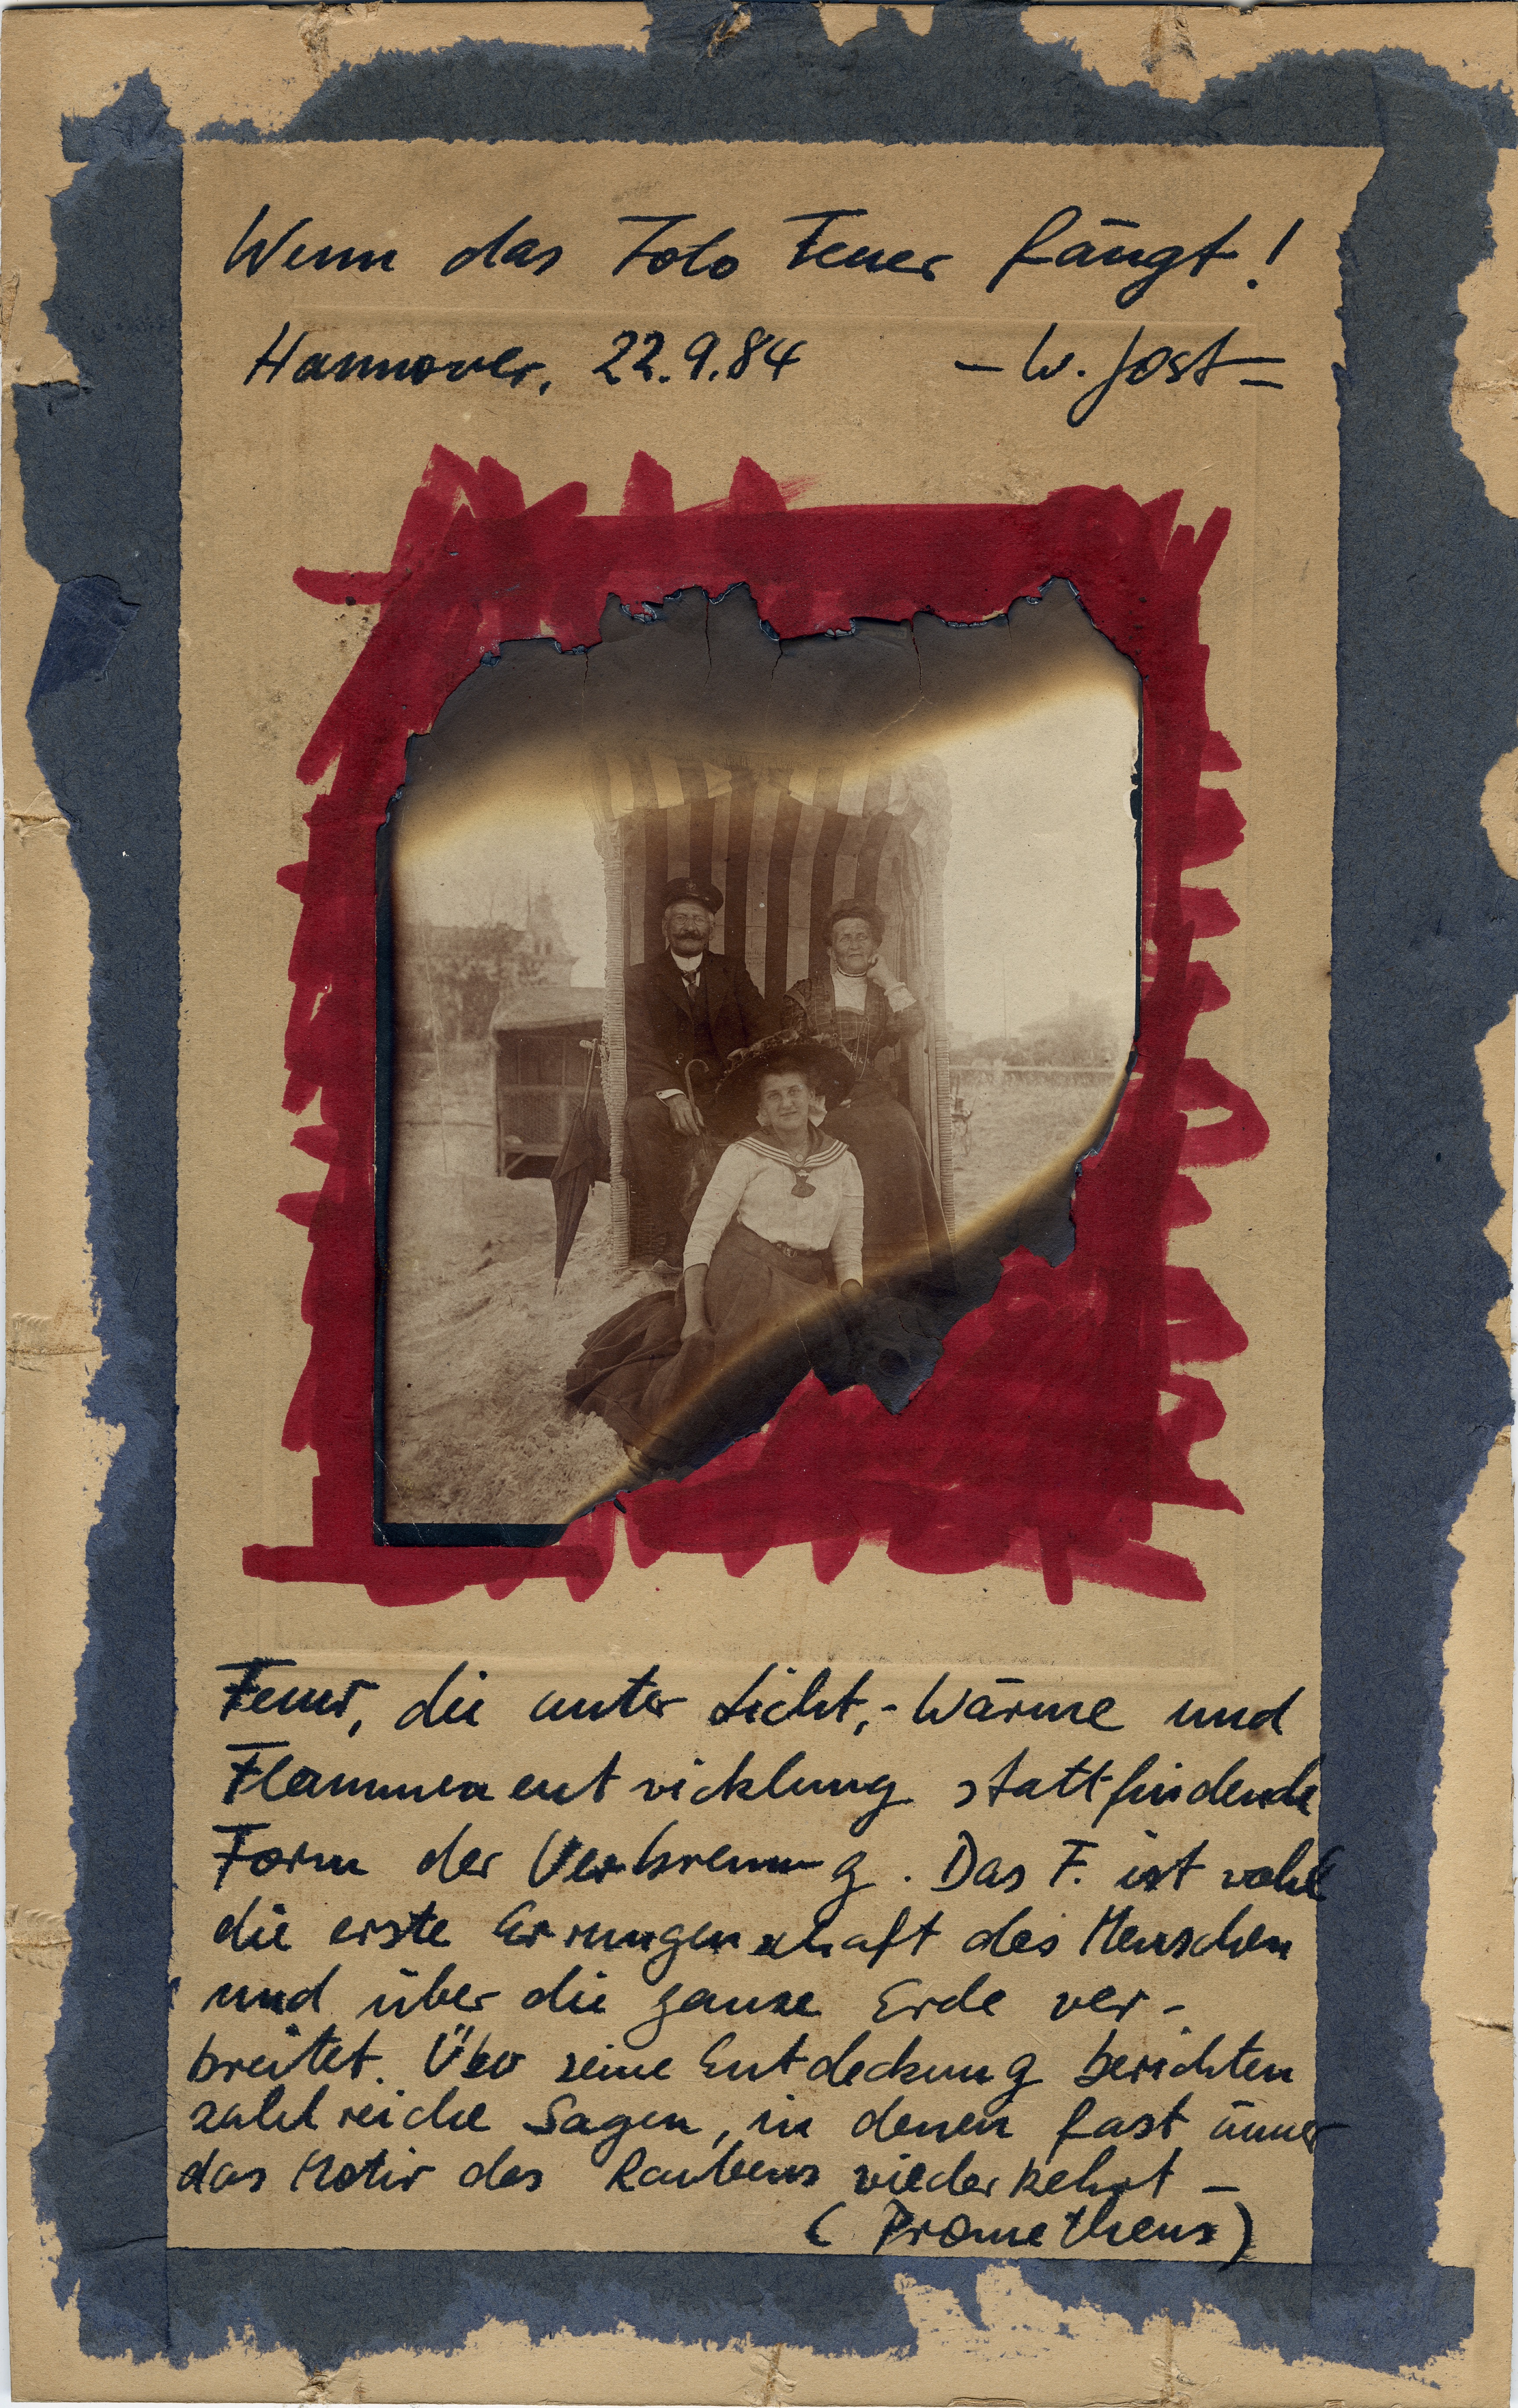 Wenn das Foto Feuer fängt!
Hannover, 22.9.84 – W. Jost –
Feuer, die unter Licht,- Wärme und
Flammenentwicklung stattfindende
Form der Verbrennung. Das F. ist wohl
die erste Errungenschaft des Menschen
und über die ganze Erde ver-
breitet. Über seine Entdeckung berichten
zahlreiche Sagen, in denen fast immer
das Motiv des Raubens wiederkehrt –
(Prometheus)